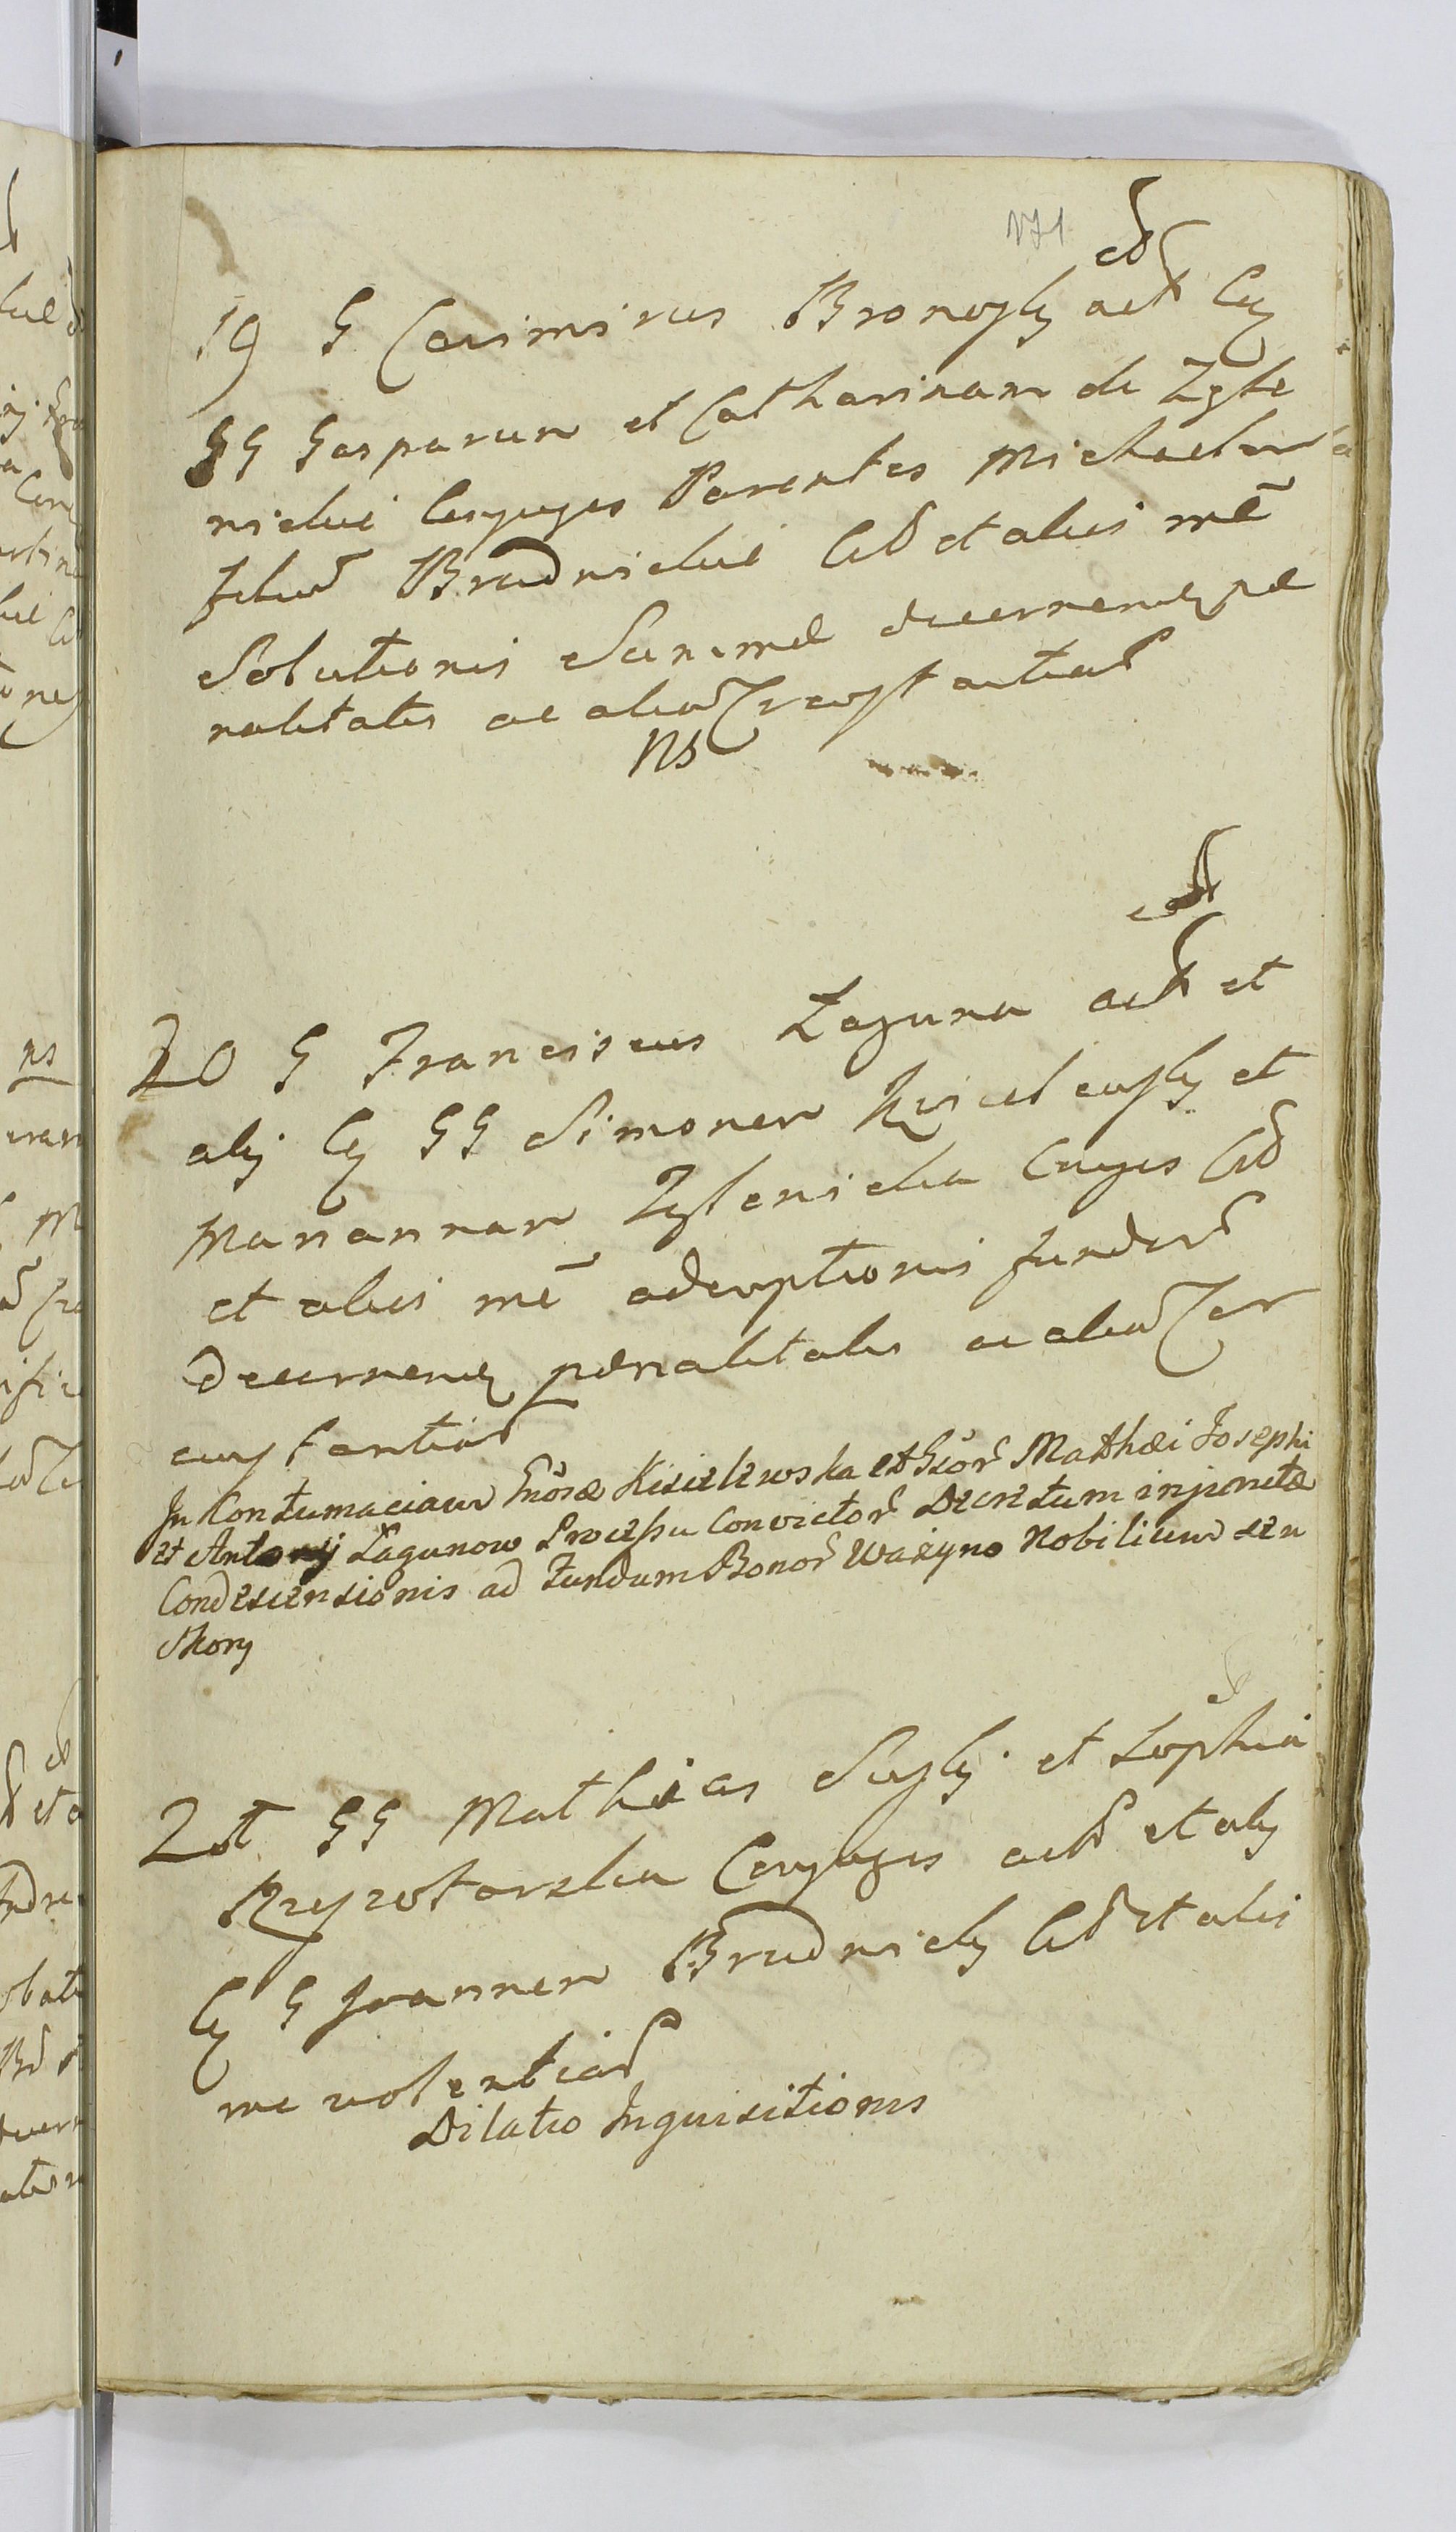 171
19 G Casimirus Bronosky act Cy
GG Gasparum et Catharinam de Zgle
nickie Conjuges Parentes Michaelem
filium Brudnickie Cit et alias mē
Solutionis Summæ decernend pæ
nalitatis ac aliud
NS
20 G Franciscus Laguna act et
alij Cy GG Simonem Kisielewsky et
Mariannam Zglenicka Conjuges Cit
et alias mē ademptionis fundor
decernend pœnalitatis ac aliud
In Contumaciam Gnosæ Kisielewska et Gsor Mathæi Josephi
et Antonij Łagunow Processu Convictor Decretum injunctæ
Condescensionis ad Fundum Bonor Ważyno Nobilium seu
Skory
21 GG Mathias Susky et Zophia
Conjuges act et alij
Cy G Joannem Brudnicky Cit et alias
me violentiar
Dilatio Inquisitionis